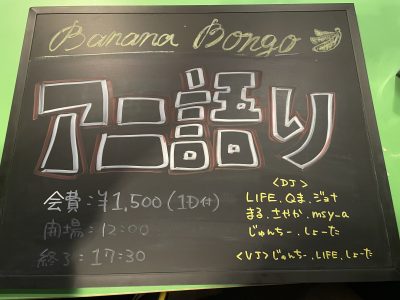 Banana Bongo
アニ語り
会費:¥1,500(1D付)
開場:12:00
終了:17:30
<DJ>
LIFE.Qま.ジョナ
まる.さやか.msy_a
じゅんちー.しょーた
<VJ>じゅんちー.LIFE.しょーた